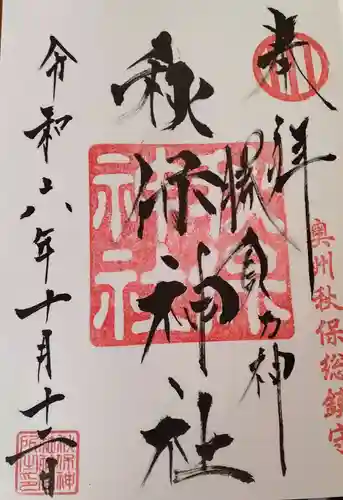 奥州秋保総鎮守
奉拝
勝負の神
秋保神社
秋保神社
令和六年十月十二日